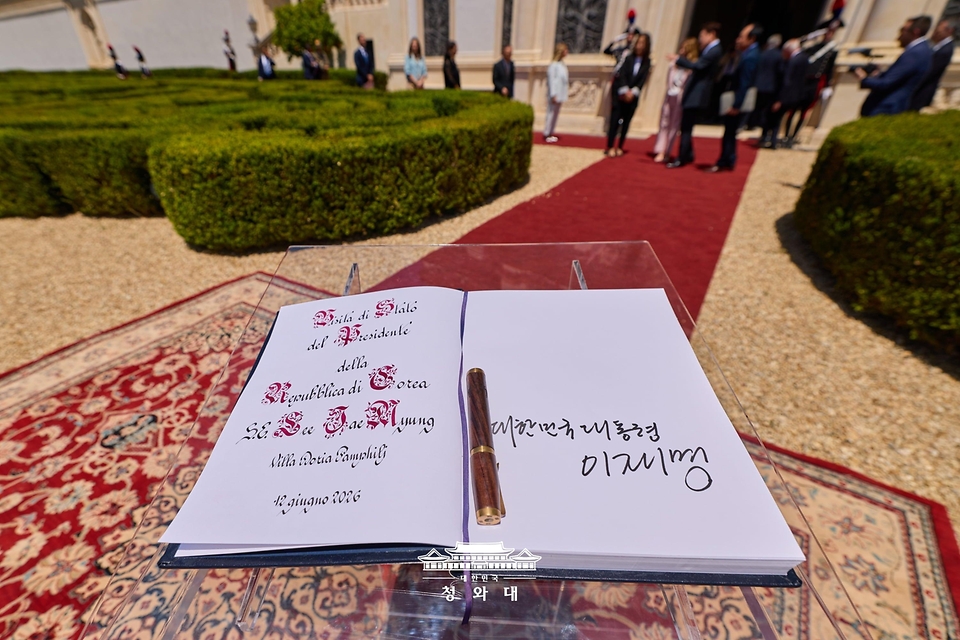 Visita di Stato
del Presidente
della
Repubblica di Corea
S.E. Lee Jae Myung
Villa Doria Pamphilj
12 giugno 2026
대한민국 대통령
이재명
대한민국
청와대